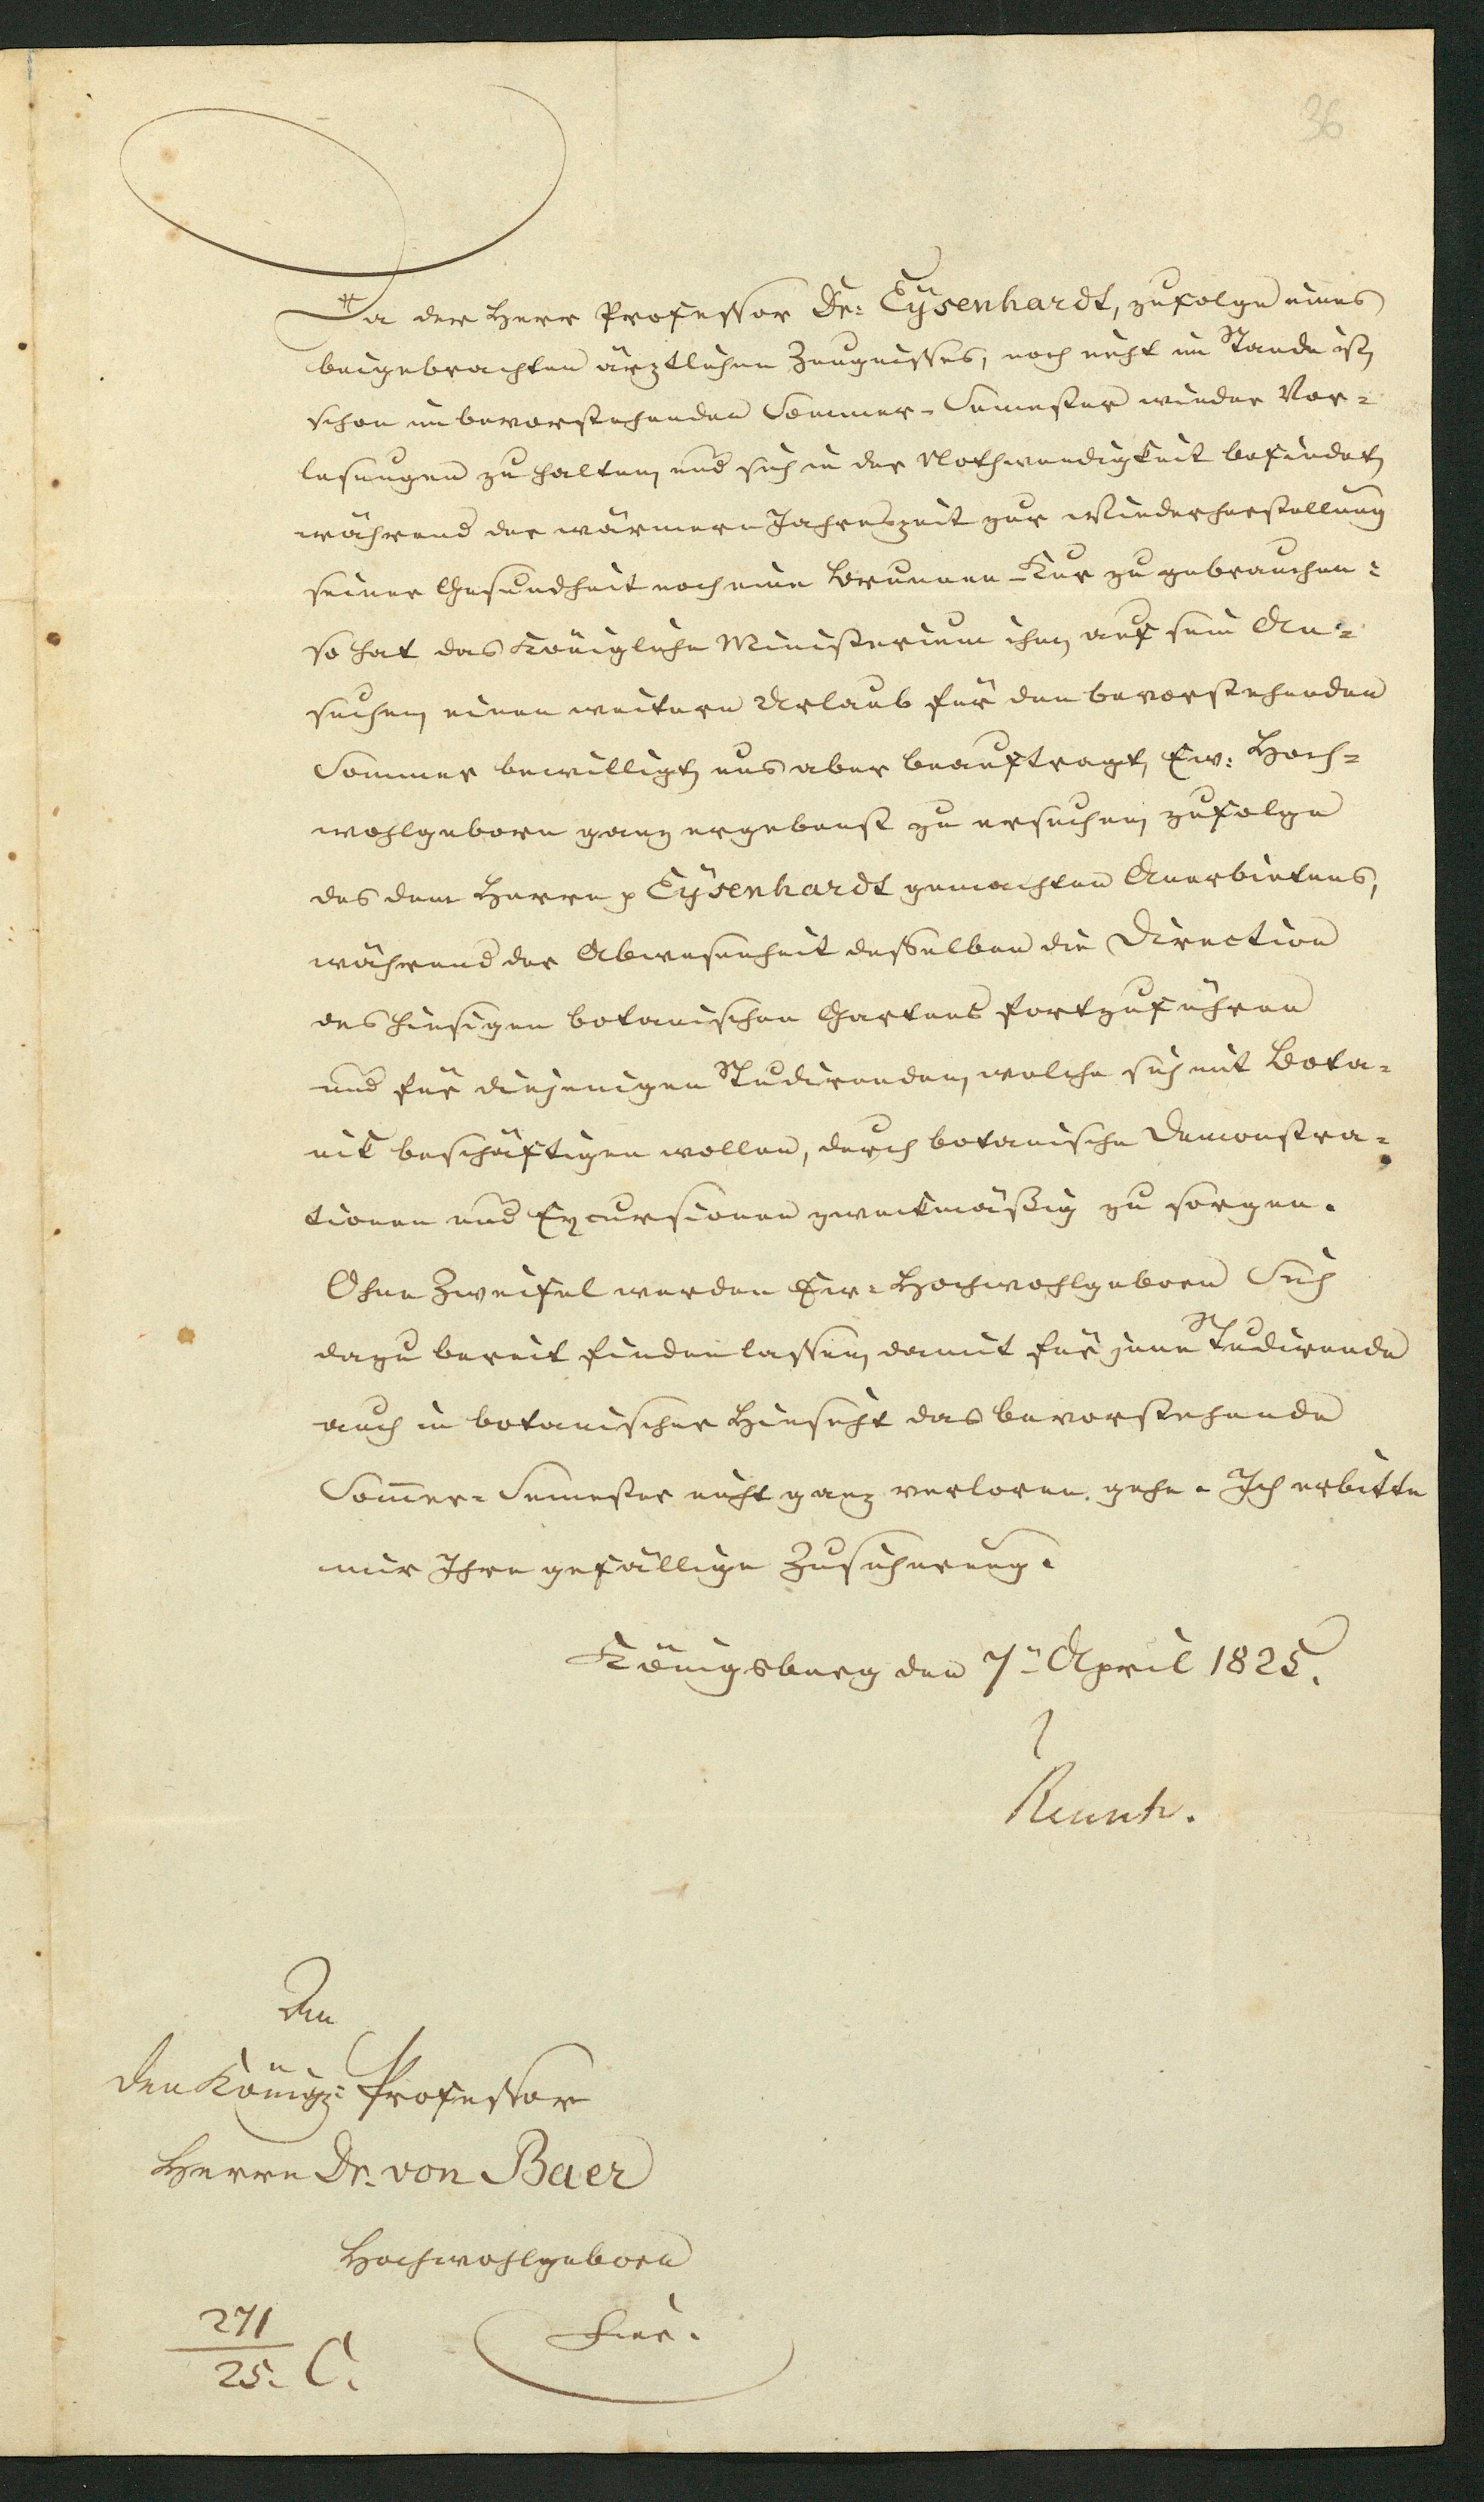 36
Da der Herr Professor Dr: Eÿsenhardt, zufolge eines
beigebrachten ärztlichen Zeugnisses, noch nicht im Stande ist,
schon im bevorstehenden Sommer-Semester wieder Vor=
lesungen zu halten, und sich in der Nothwendigkeit befindet,
während der wärmern Jahreszeit zur Wiederherstellung
seiner Gesundheit noch eine Brunnen-Kur zu gebrauchen:
so hat das Königliche Ministerium ihm, auf sein An=
suchen, einen weitern Urlaub für den bevorstehenden
Sommer bewilligt, uns aber beauftragt, Ew: Hoch=
wohlgeboren ganz ergebenst zu ersuchen, zufolge
des dem Herrn p Eÿsenhardt gemachten Anerbietens,
während der Abwesenheit desselben die Direction
des hiesigen botanischen Gartens fortzuführen
und für diejenigen Studirenden, welche sich mit Bota=
nik beschäftigen wollen, durch botanische Demonstra=
tionen und Excursionen zweckmäßig zu sorgen.
Ohne Zweifel werden Ew: Hochwohlgeboren Sich
dazu bereit finden lassen, damit für jene Studirende
auch in botanischer Hinsicht das bevorstehende
Som̄er-Semester nicht ganz verloren gehe. Ich erbitte
mir Ihre gefällige Zusicherung.
Königsberg den 7n April 1825.
An
den Königl: Professor
Herrn Dr. von Baer
Hochwohlgeboren
hier.
271
25. C.